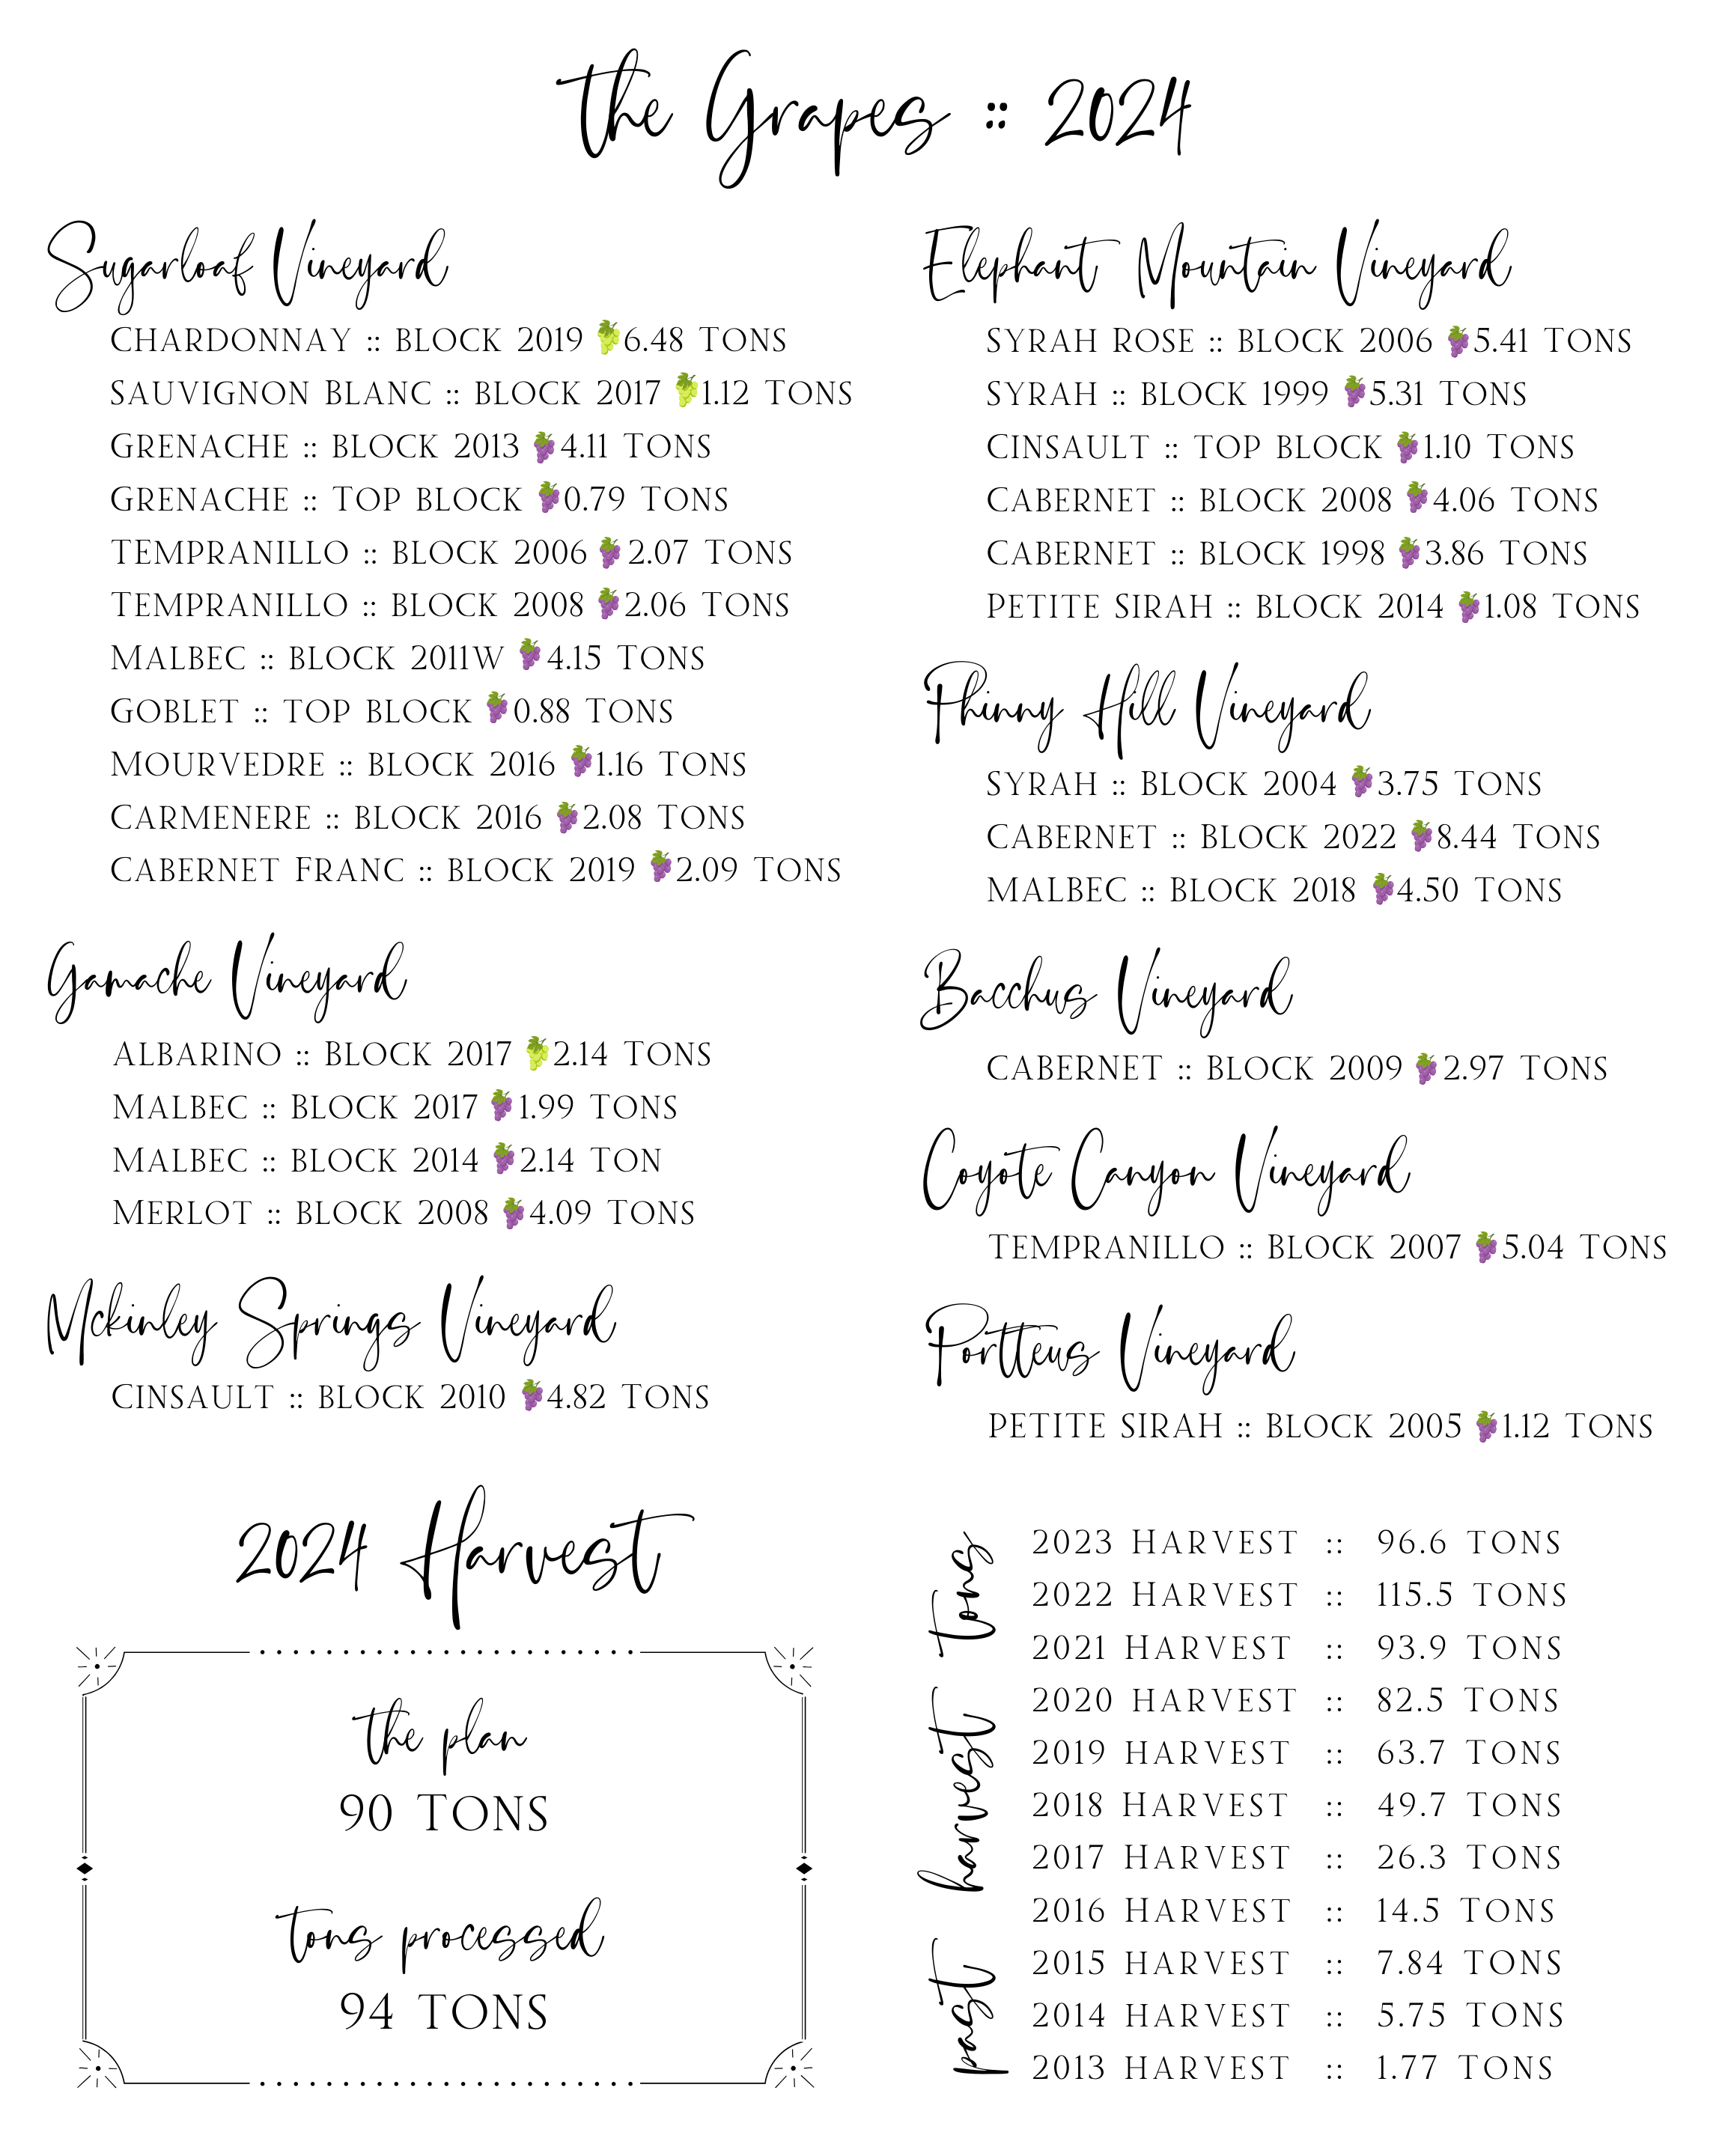 the Grapes :: 2024
Sugarloaf Vineyard
Chardonnay :: Block 2019 🍇6.48 Tons
Sauvignon Blanc :: Block 2017 🍇1.12 Tons
Grenache :: Block 2013 🍇4.11 Tons
Grenache :: Top Block 🍇0.79 Tons
Tempranillo :: Block 2006 🍇2.07 Tons
Tempranillo :: Block 2008 🍇2.06 Tons
Malbec :: Block 2011W 🍇4.15 Tons
Goblet :: Top Block 🍇0.88 Tons
Mourvedre :: Block 2016 🍇1.16 Tons
Carmenere :: Block 2016 🍇2.08 Tons
Cabernet Franc :: Block 2019 🍇2.09 Tons
Gamache Vineyard
Albarino :: Block 2017 🍇2.14 Tons
Malbec :: Block 2017 🍇1.99 Tons
Malbec :: Block 2014 🍇2.14 Ton
Merlot :: Block 2008 🍇4.09 Tons
Mckinley Springs Vineyard
Cinsault :: Block 2010 🍇4.82 Tons
Elephant Mountain Vineyard
Syrah Rose :: Block 2006 🍇5.41 Tons
Syrah :: Block 1999 🍇5.31 Tons
Cinsault :: Top Block 🍇1.10 Tons
Cabernet :: Block 2008 🍇4.06 Tons
Cabernet :: Block 1998 🍇3.86 Tons
Petite Sirah :: Block 2014 🍇1.08 Tons
Phinny Hill Vineyard
Syrah :: Block 2004 🍇3.75 Tons
Cabernet :: Block 2022 🍇8.44 Tons
Malbec :: Block 2018 🍇4.50 Tons
Bacchus Vineyard
Cabernet :: Block 2009 🍇2.97 Tons
Coyote Canyon Vineyard
Tempranillo :: Block 2007 🍇5.04 Tons
Portteus Vineyard
Petite Sirah :: Block 2005 🍇1.12 Tons
2024 Harvest
the plan
90 Tons
tons processed
94 Tons
past harvest tons
2023 Harvest :: 96.6 Tons
2022 Harvest :: 115.5 Tons
2021 Harvest :: 93.9 Tons
2020 Harvest :: 82.5 Tons
2019 Harvest :: 63.7 Tons
2018 Harvest :: 49.7 Tons
2017 Harvest :: 26.3 Tons
2016 Harvest :: 14.5 Tons
2015 Harvest :: 7.84 Tons
2014 Harvest :: 5.75 Tons
2013 Harvest :: 1.77 Tons